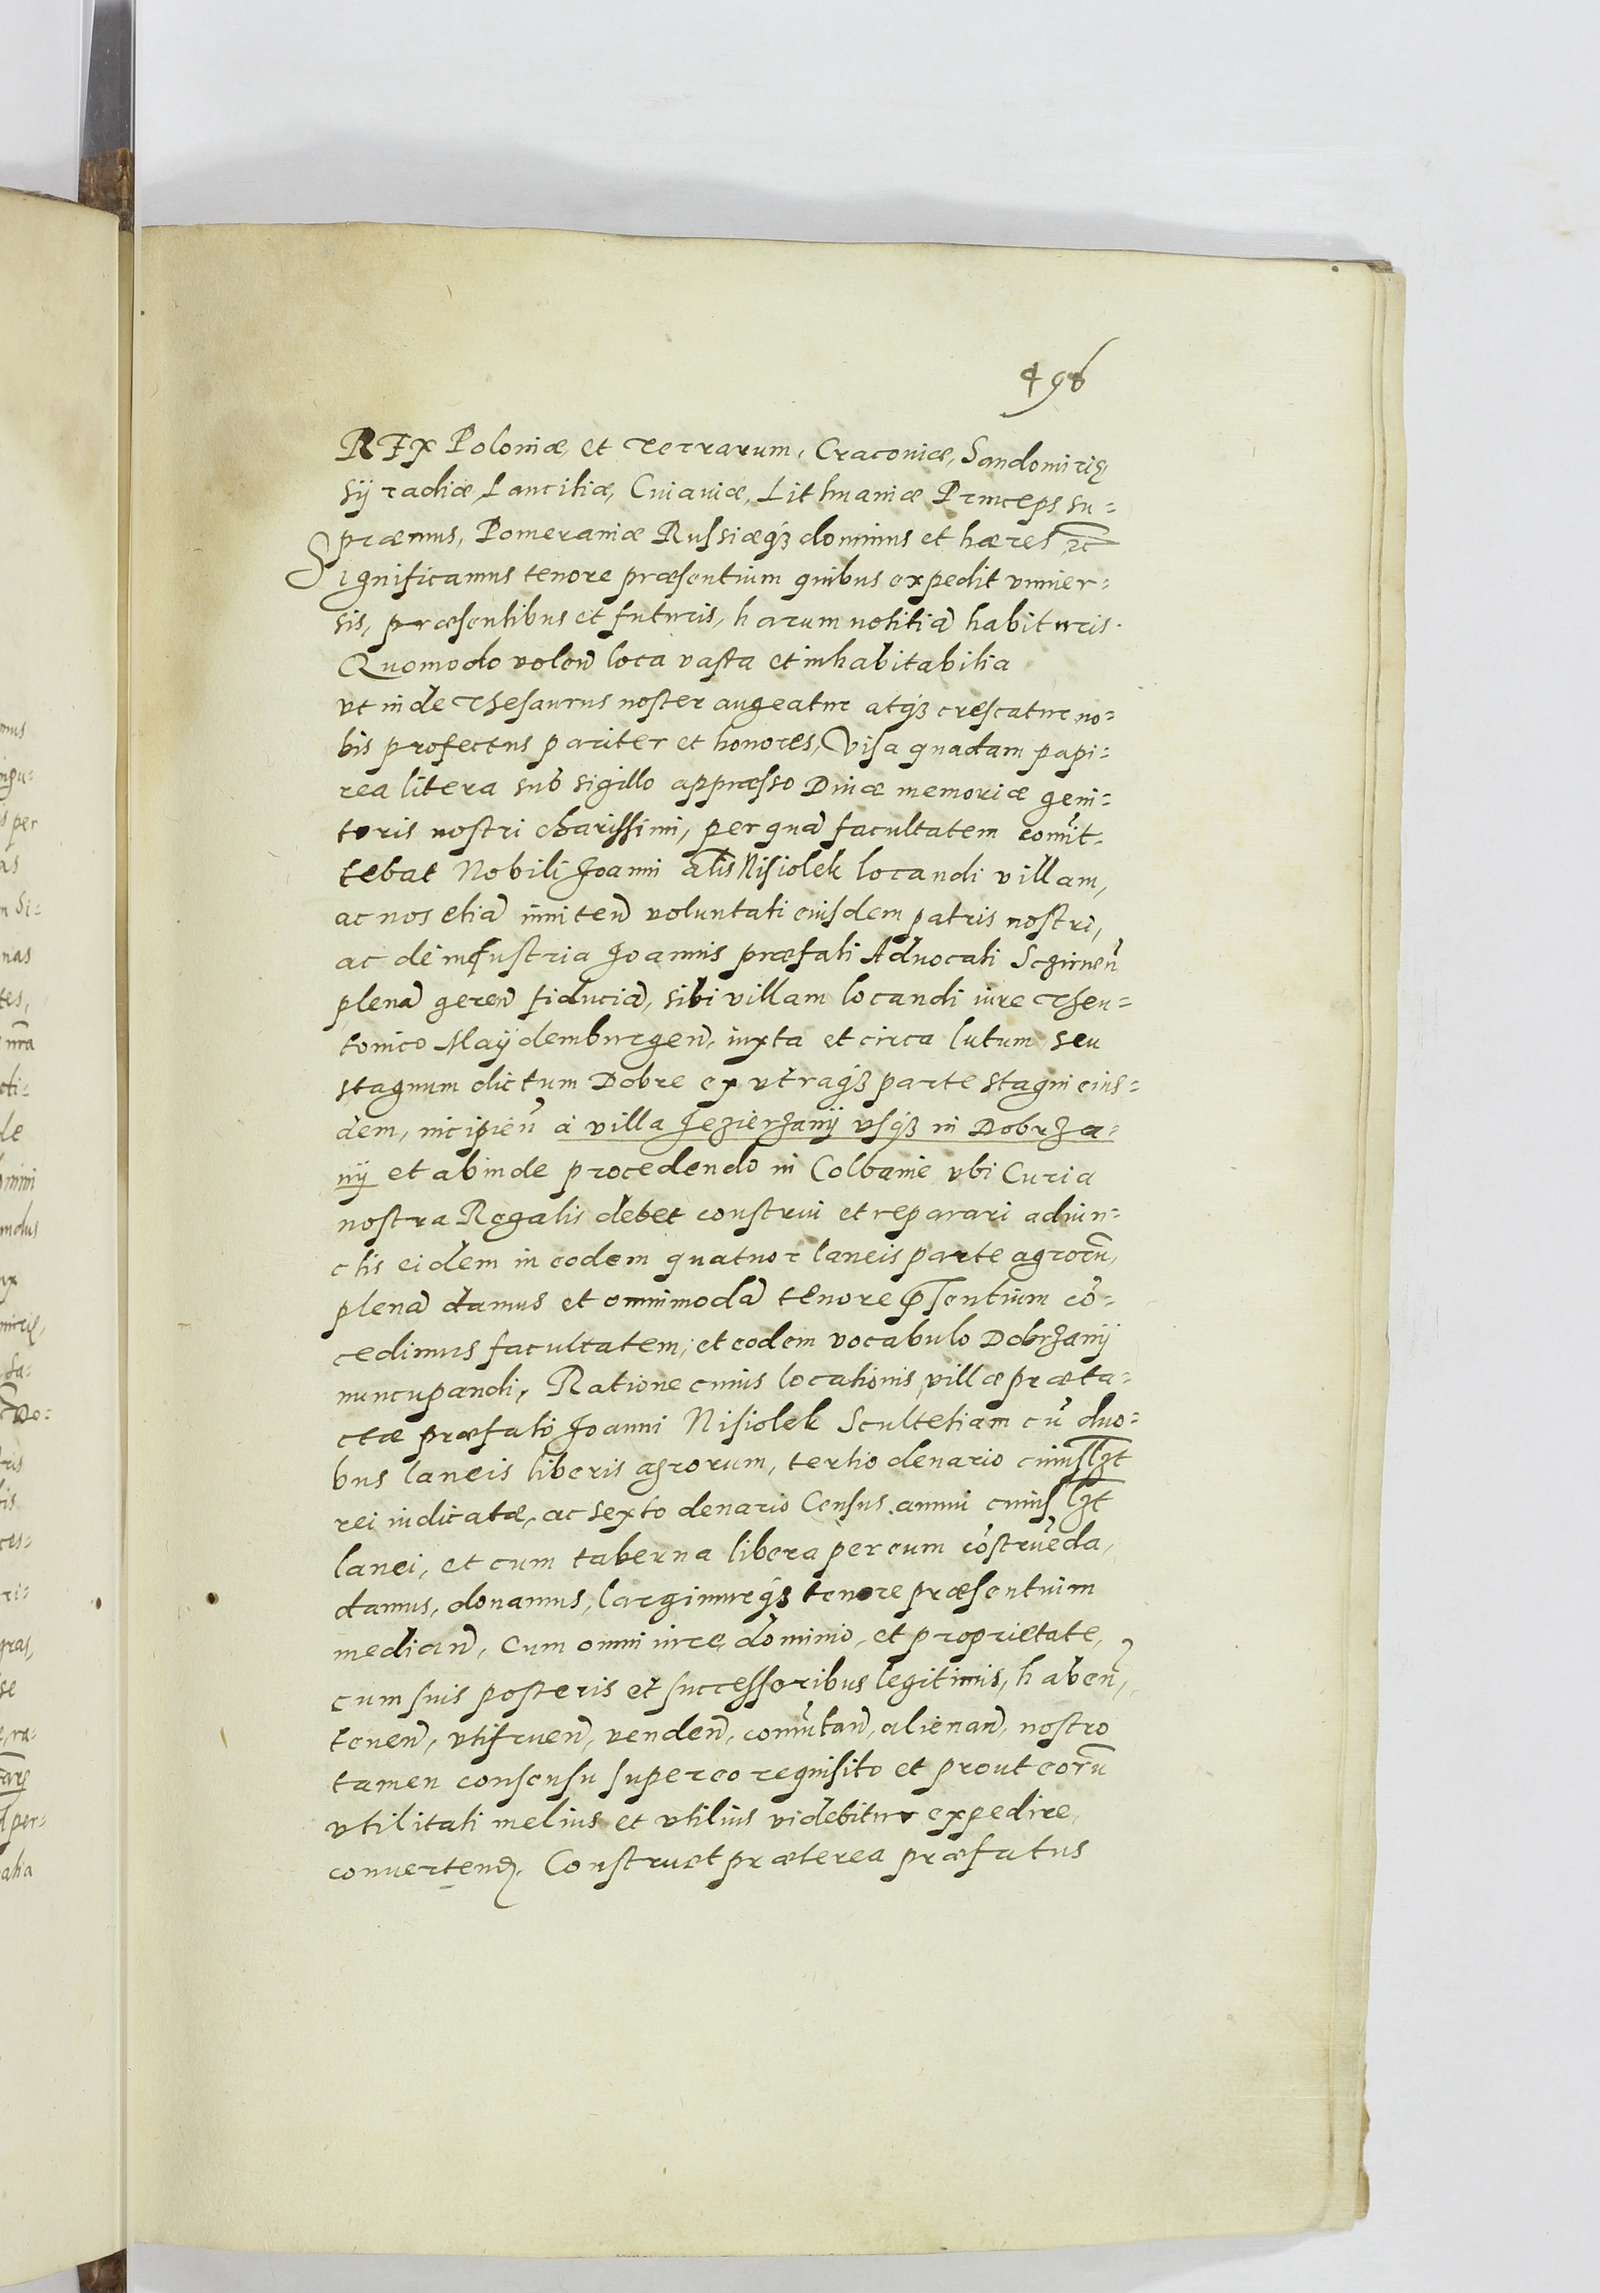 496
REX Poloniæ, et terrarum, Cracoviæ, Sandomirię
Syradiæ, Lancitiæ, Cuiaviæ, Lithuaniæ Princeps su=
præmus, Pomeraniæ Russiæq3 dominus et hæres etc̄
Significamus tenore præsentium quibus expedit vniuer=
sis, præsentibus et futuris, harum notitiā habituris.
Quomodo volen̄ loca vasta et inhabitabilia
vt inde Thesaurus noster augeatur atq3 crescatur no=
bis profectus pariter et honores, Visa quadam papi=
rea litera sub sigillo appresso Diuæ memoriæ geni=
toris nostri charissimi, per quā facultatem comīt=
tebat Nobili Joanni al̄is Nisiolek locandi villam,
ac nos etiā inniten̄ voluntati eiusdem patris nostri,
ac de industria Joannis præfati Advocati Sczirnen̄
plenā geren̄ fiduciā, sibi villam locandi iure Theu=
tonico Maÿdemburgen̄, iuxta et circa lutum seu
stagnum dictum Dobre ex vtraq3 parte stagni eius=
dem, incipien̄ à villa Jezierzanÿ vsq3 in Dobrza=
nÿ et abinde procedendo in Colbanie vbi Curia
nostra Regalis debet construi et reparari adiun=
ctis eidem in eodem quatuor laneis parte agrorū,
plenā damus et omnimodā tenore p̄sentium cō=
cedimus facultatem, et eodem vocabulo Dobrzanÿ
nuncupandi, Ratione cuius locationis villæ præta=
ctæ præfato Joanni Nisiolek Scultetiam cū duo=
bus laneis liberis agrorum, tertio denario cuiusl3t
rei iudicatæ, ac sexto denario Census annui cuiusl3t
lanei, et cum taberna libera per eum cōstruēda,
damus, donamus, largimurq3 tenore præsentium
median̄, Cum omni iure, dominio, et proprietate,
cum suis posteris et successoribus legitimis, haben̄,
tenen̄, vtifruen̄, venden̄, comūtan̄, alienan̄, nostro
tamen consensu super eo requisito et prout eorū
vtilitati melius et vtilius videbitur expedire,
convertend. Construet præterea præfatus